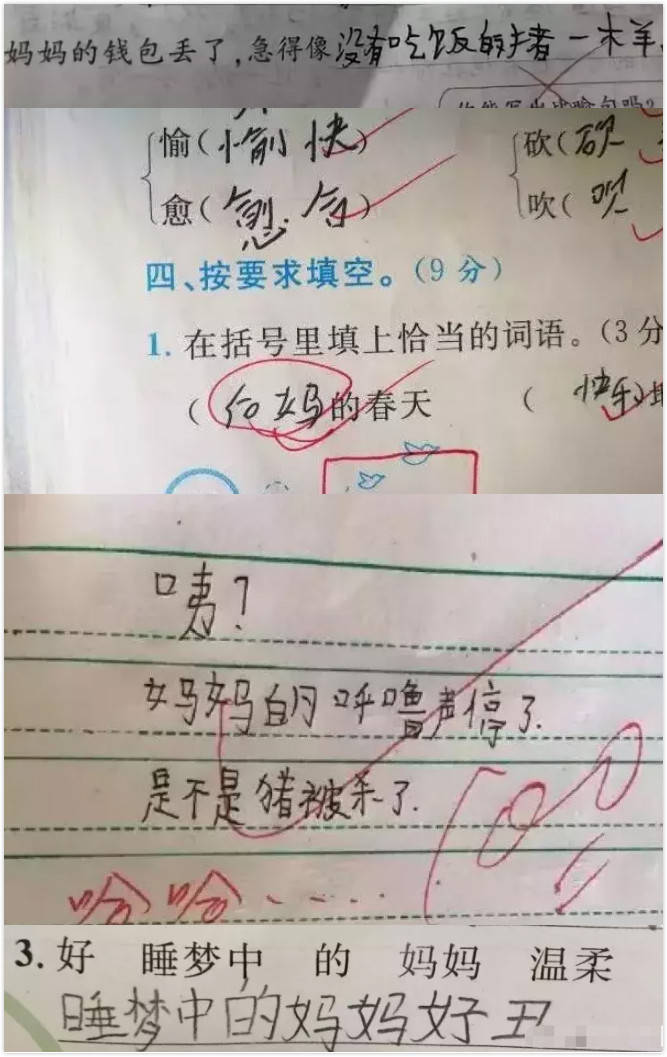 妈妈的钱包丢了,急得像没有吃饭的老一木羊
愉(愉快) 砍(砍
愈(愈合) 吹(吹
四、按要求填空。(9分)
1. 在括号里填上恰当的词语。(3分
(后妈的春天 (快乐)地
咦?
妈妈的呼噜声停了.
是不是猪被杀了.
哈哈·····
3. 好 睡梦中 的 妈妈 温柔
睡梦中的妈妈好丑